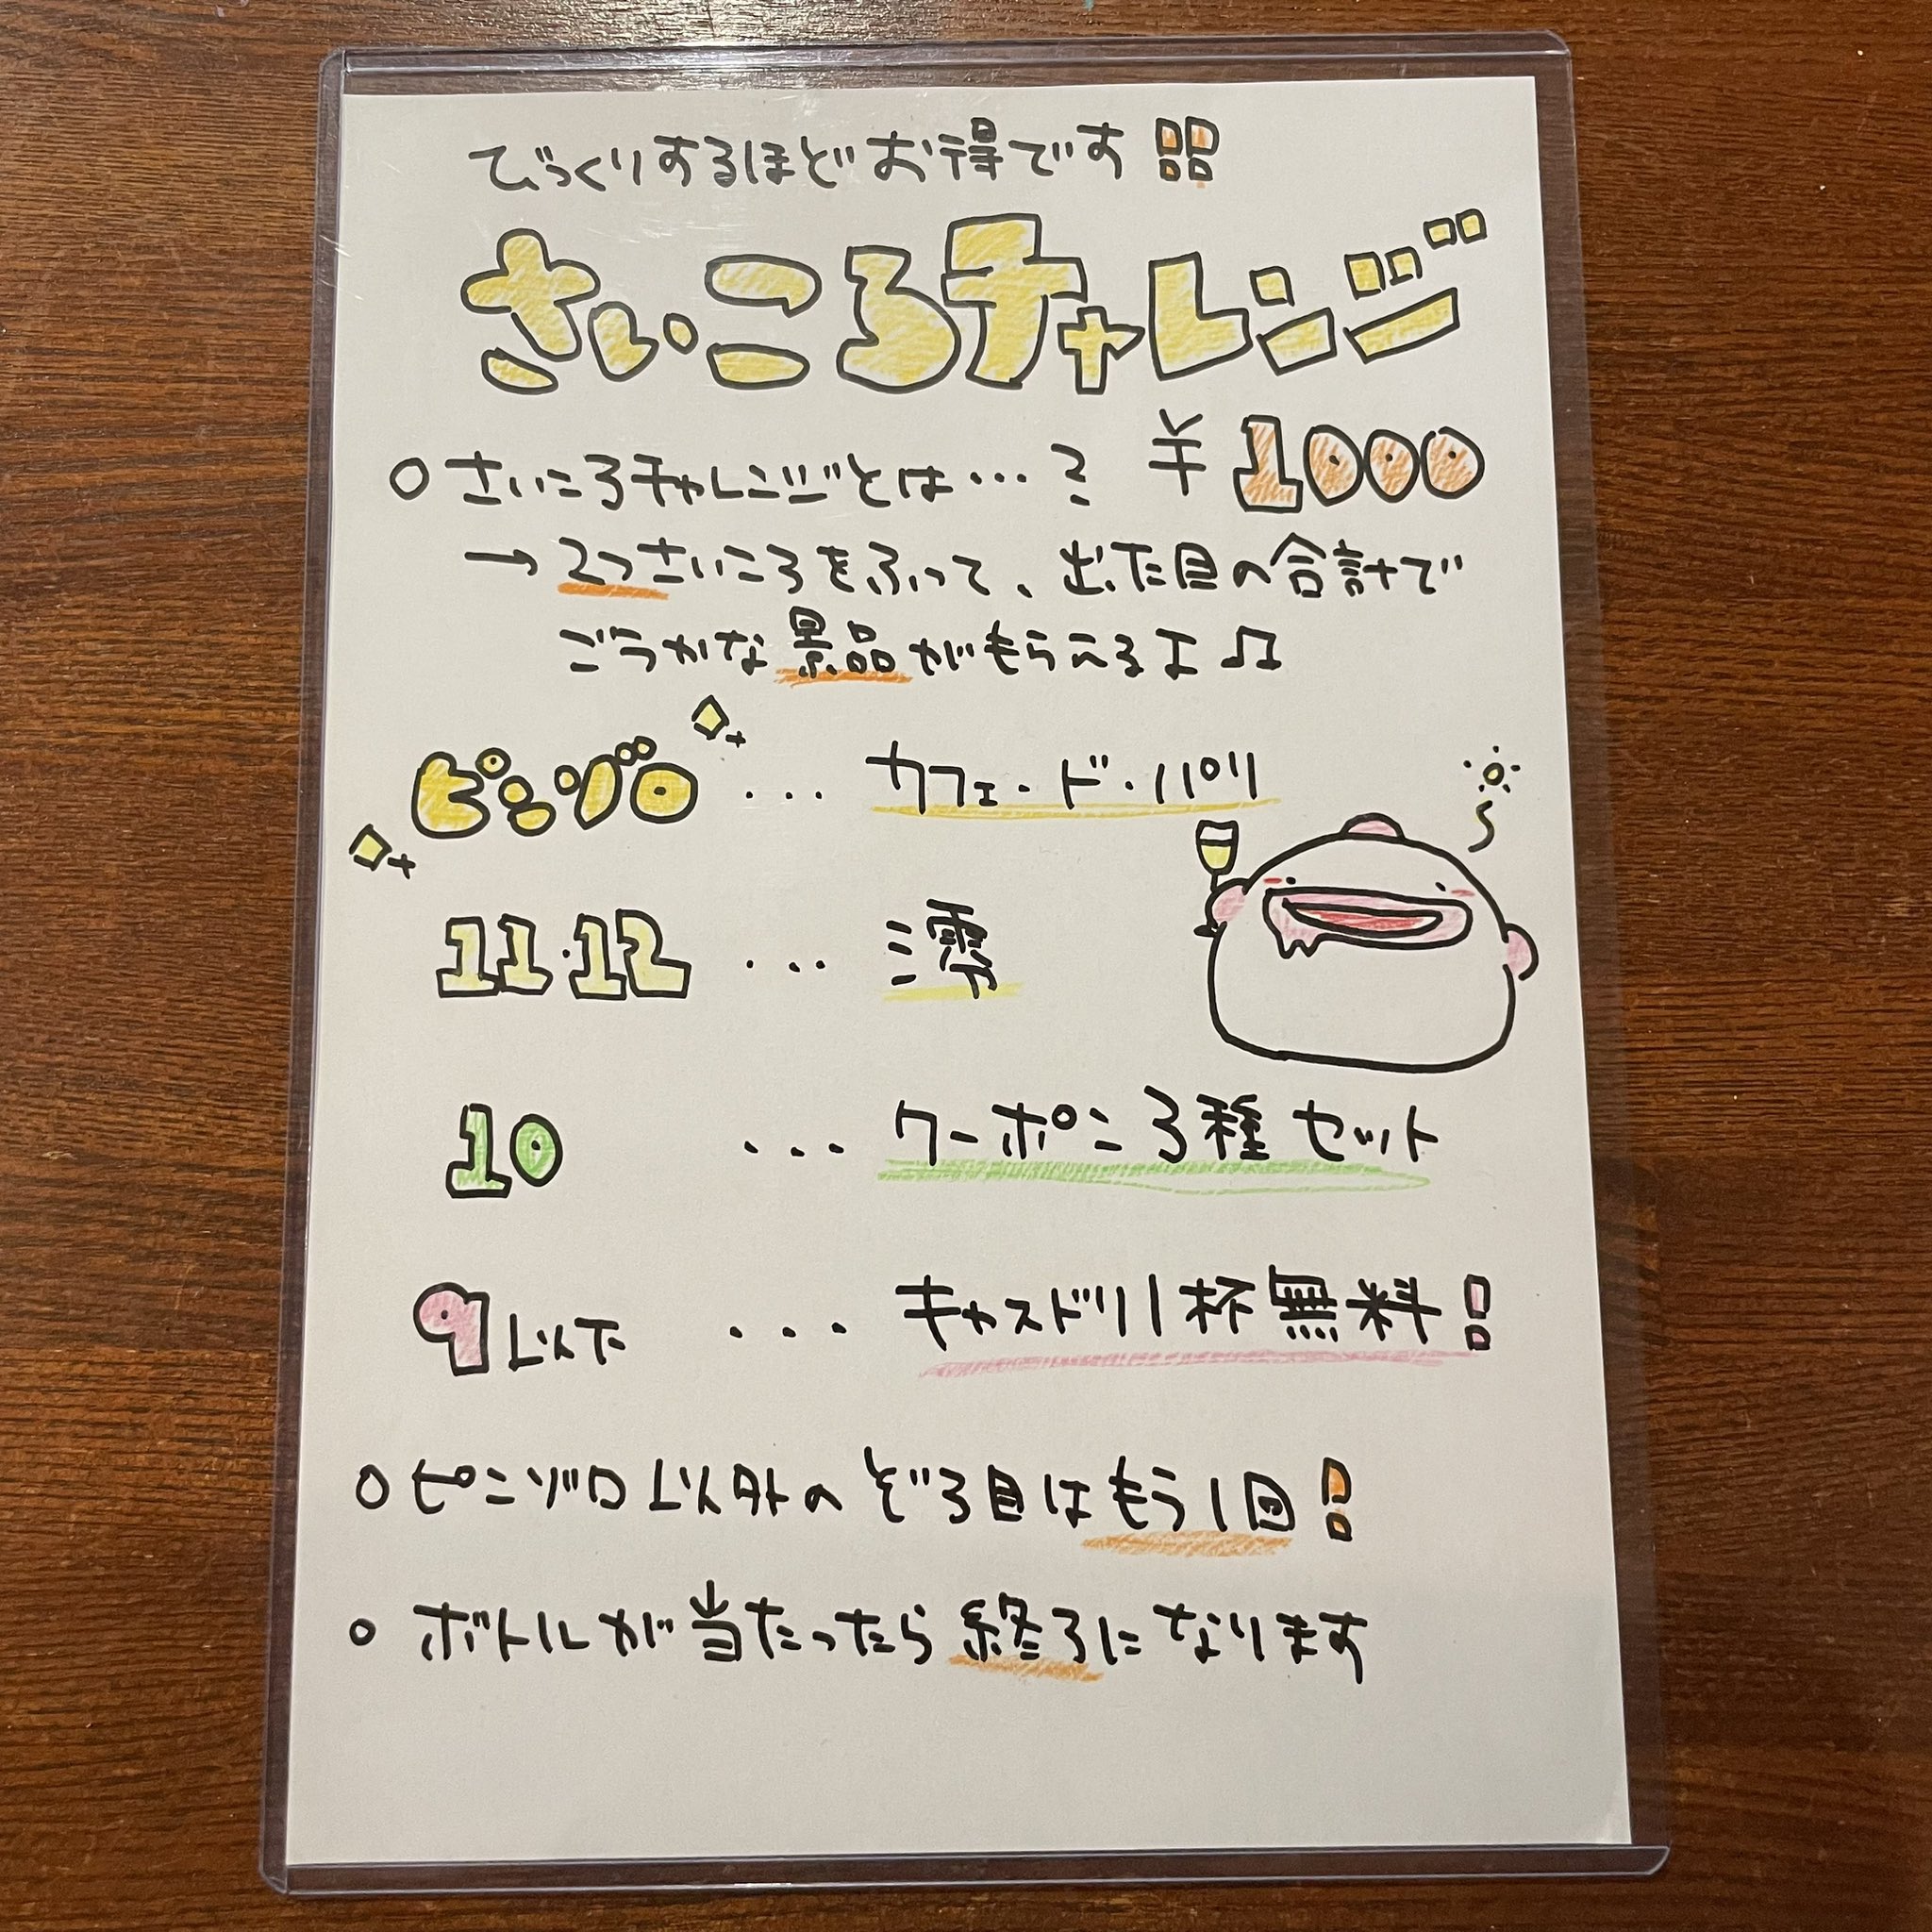 びっくりするほどお得です!!
さいころチャレンジ
○ さいころチャレンジとは…? ¥1000
→ 2つさいころをふって、出た目の合計で
ごうかな景品がもらえるよ♫
ピンゾロ ... カフェ・ド・パリ
11・12 ... 澪
10 ... クーポン3種セット
9以下 ... キャスドリ1杯無料!
○ ピンゾロ以外のぞろ目はもう1回!
○ ボトルが当たったら終了になります